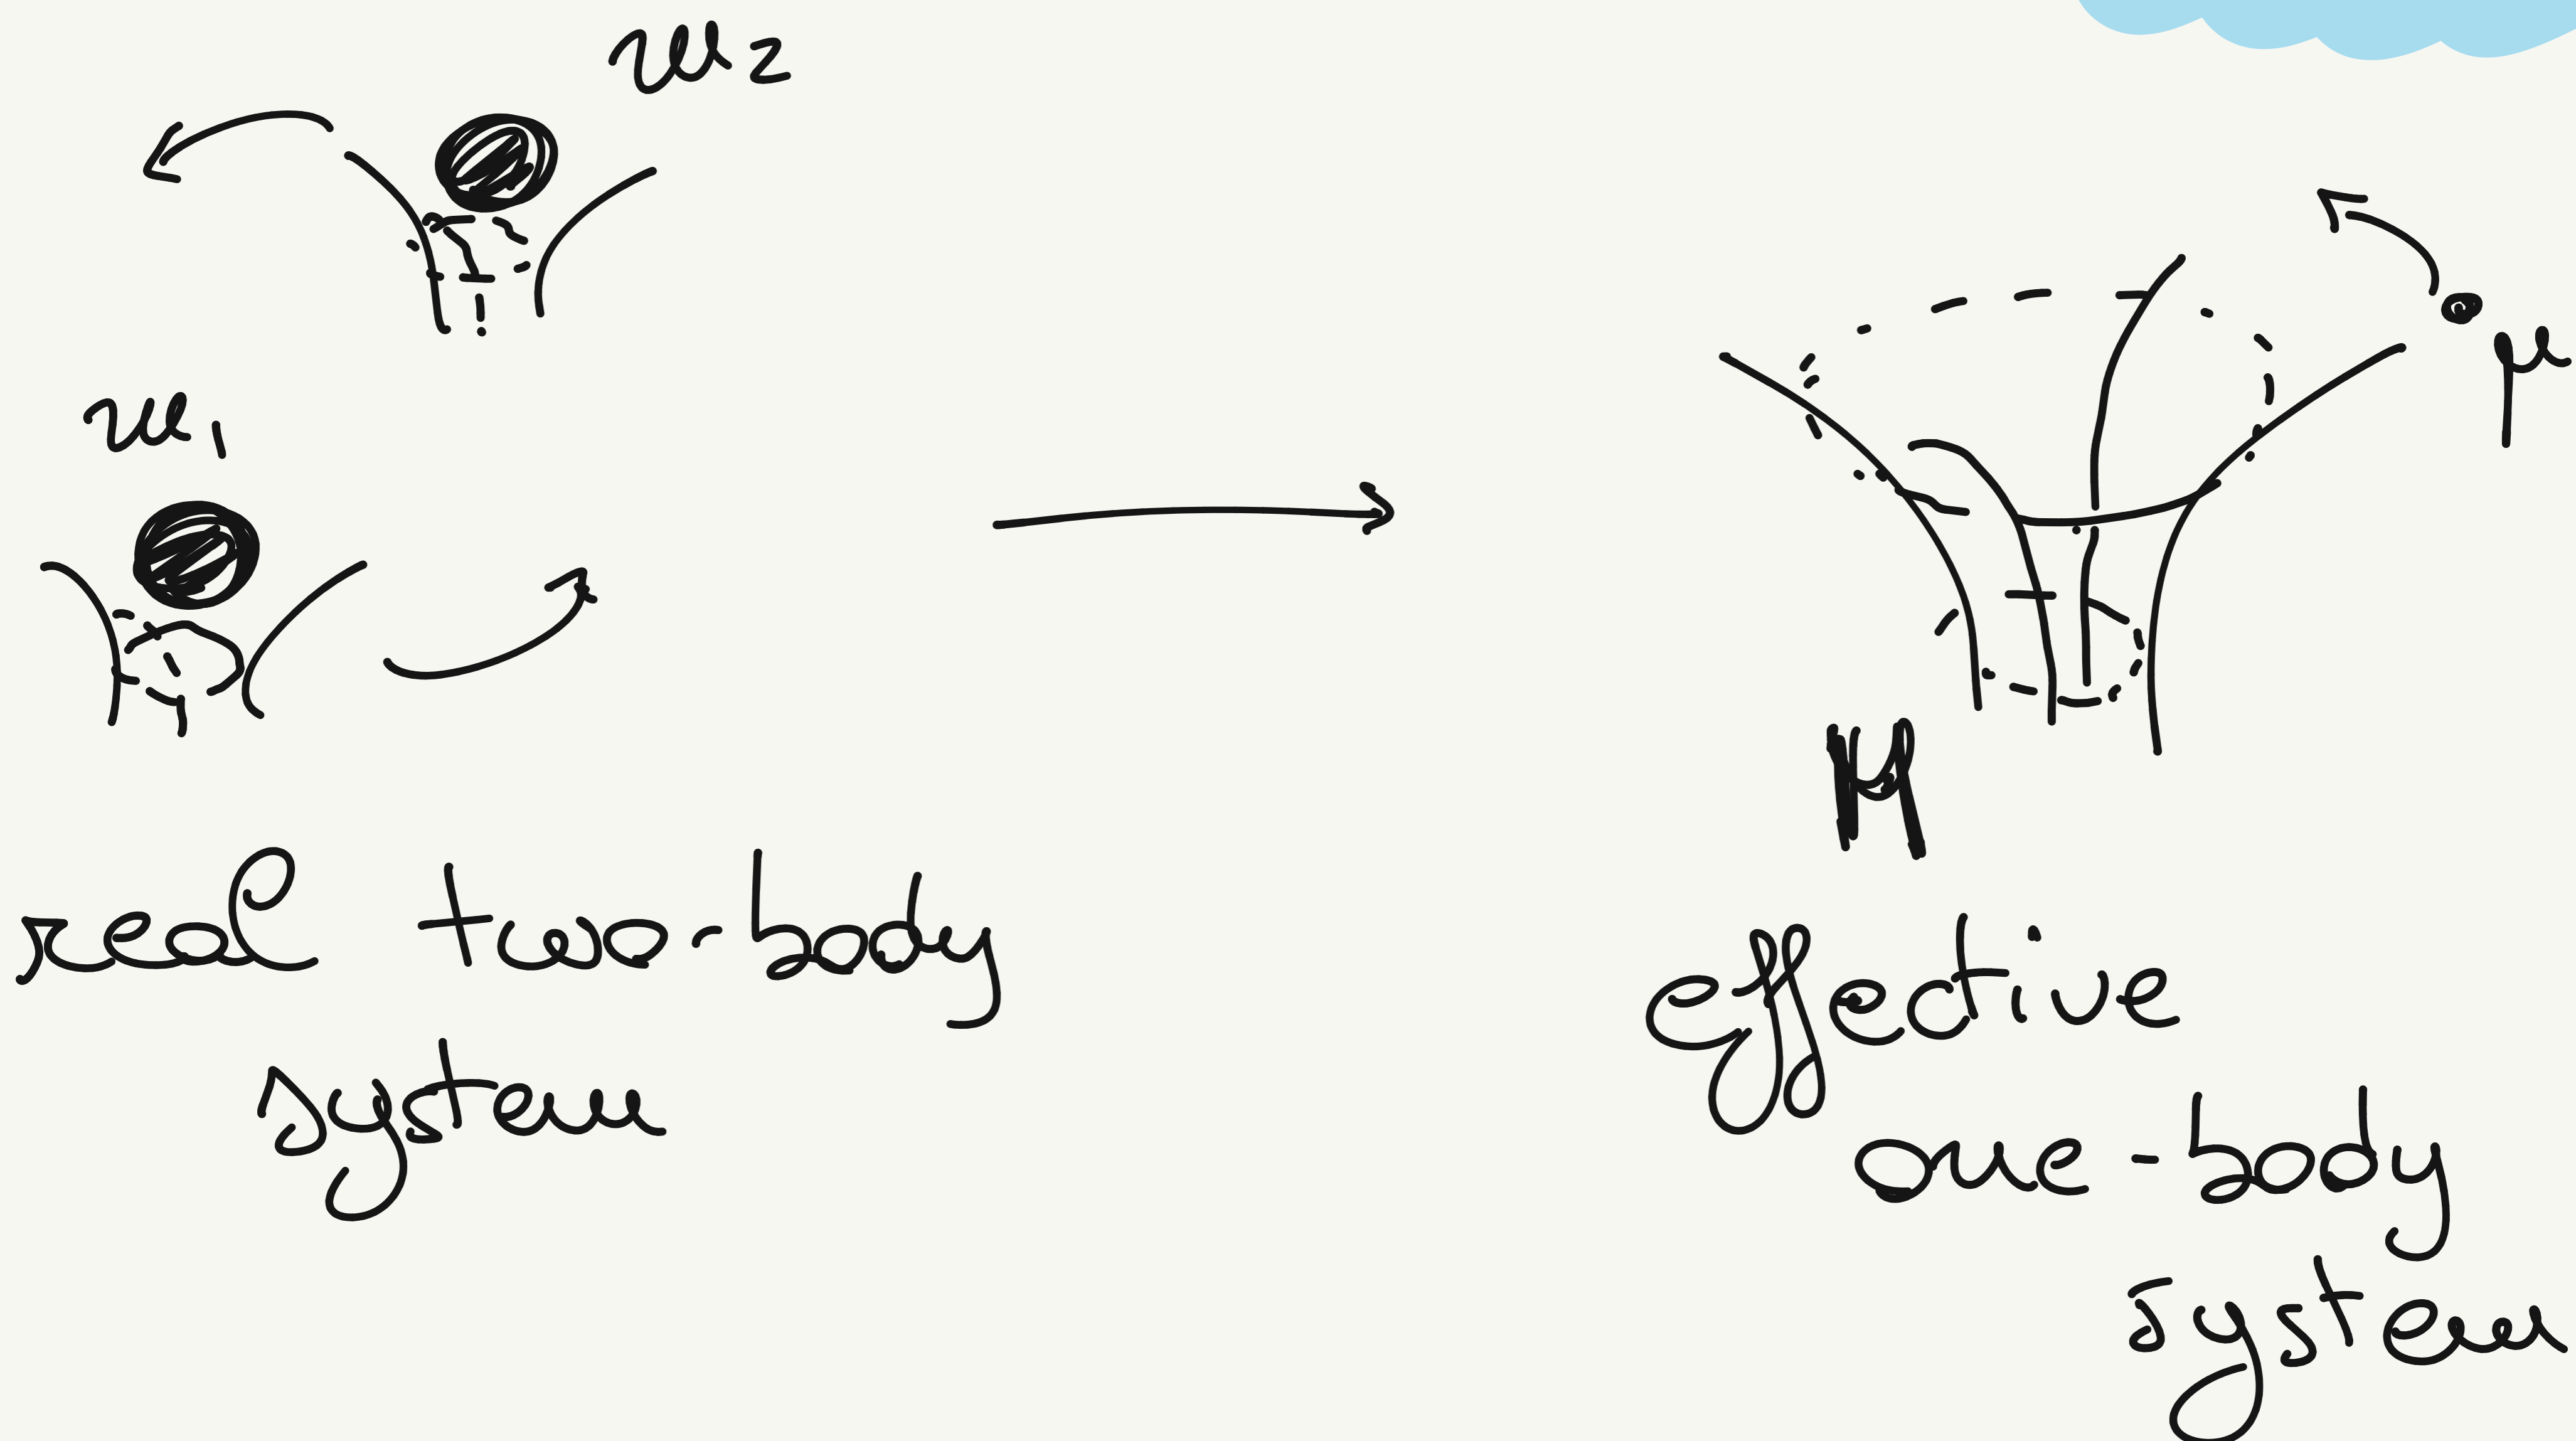 m2
m1
μ
M
real two-body
system
effective
one-body
system